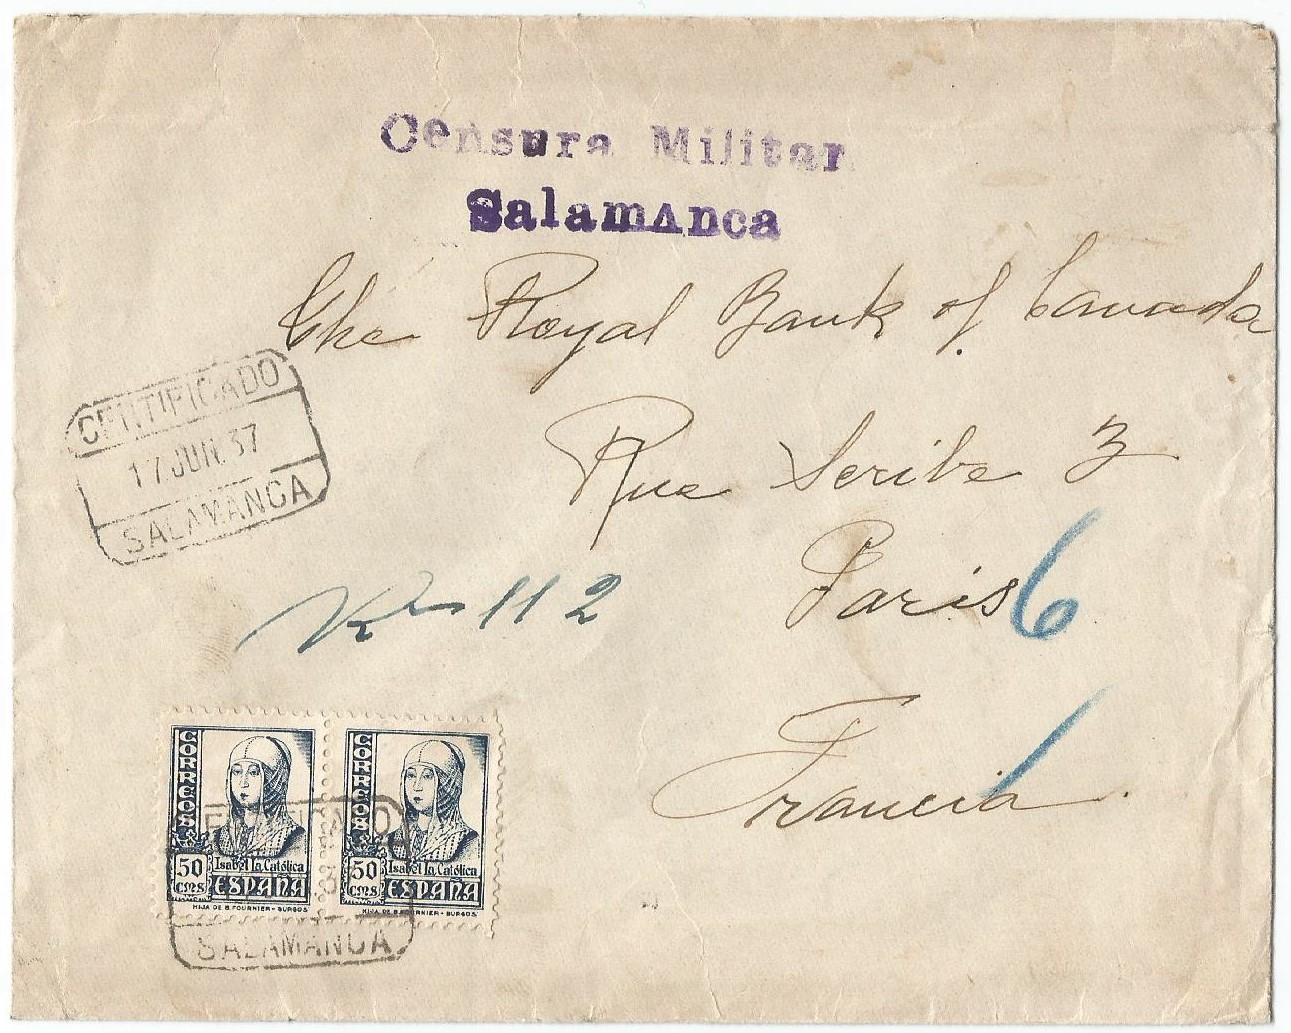 Censura Militar
Salamanca
The Royal Bank of Canada
CERTIFICADO
17.JUN.37
SALAMANCA
Rue Scribe 3
Paris 6
112
Francia
CORREOS
50
CMS
Isabel la Católica
ESPAÑA
HIJA DE B. FOURNIER - BURGOS
CORREOS
50
CMS
Isabel la Católica
ESPAÑA
HIJA DE B. FOURNIER - BURGOS
SALAMANCA